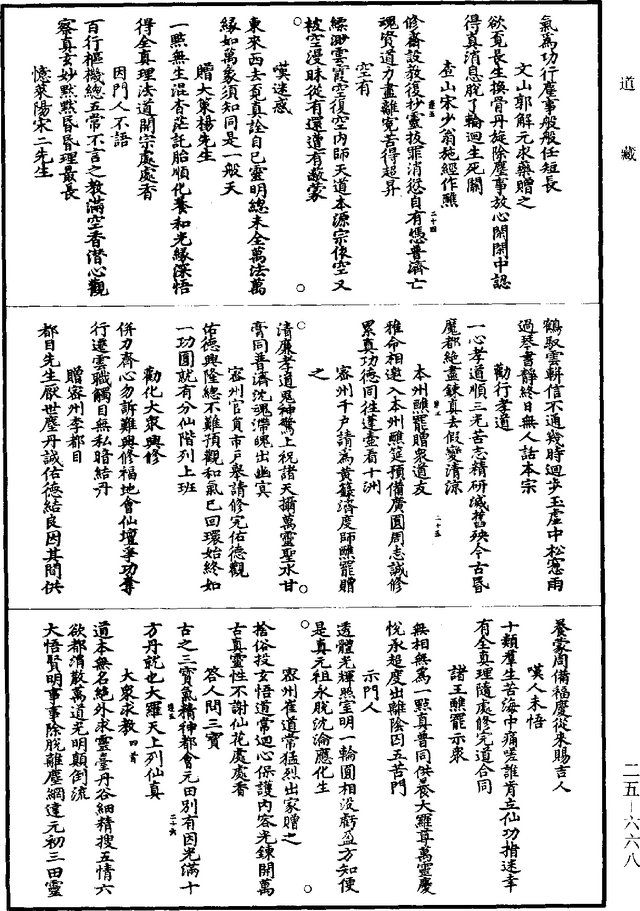 道藏
氣為功行塵事般般任短長
文山郭解元求藥贈之
欲覓長生換骨丹旋除塵事放心閑閑中認
得真消息脫了輪迴生死關
查山宋少翁施經作醮
修齋設教復抄靈拔罪消愆自有憑普濟亡
魂資道力盡離冤苦得超昇
二十四
空有
縹渺雲霞空復空內師天道本源宗俵空又
被空漫昧從有還遭有蔽蒙
嘆迷惑
東來西去覓真詮自己靈明總未全萬法萬
緣如萬象須知同是一般天
贈大策楊先生
一點無生混杳茫託胎順化養和光緣深悟
得全真理法道開宗處處香
因門人不語
百行樞機總五常不言之教滿空香潛心觀
察真玄妙默默昏昏理最長
憶萊陽宋二先生
鶴馭雲輧信不通幾時迴步玉虛中松窻雨
過琴書靜終日無人話本宗
勸行孝道
一心孝道順三光苦志精研滅舊殃今古昏
魔都絕盡鍊真去假變清涼
本州醮罷贈衆道友
二十五
雅命相邀入本州醮筵預備廣圓周志誠修
累真功德同往蓬壺看十洲
密州千戶請為黃籙濟度師醮罷贈
之
清廉孝道鬼神驚上祝諸天攝萬靈聖水甘
膏同普濟沈魂滯魄出幽冥
密州官員市戶衆請修完佑德觀
佑德興隆總不難預觀和氣已回環始終如
一功圓就有分仙階列上班
勸化大衆興修
併力齊心勿訴難興修福地會仙壇爭功奪
行遶雲職觸目無私暗結丹
贈密州李都目
都目先生厭世塵丹誠佑德結良因其間供
養蒙周備福慶從來賜吉人
嘆人未悟
十類羣生苦海中痛嗟誰肯立仙功指迷幸
有全真理隨處修完道合同
諸王醮罷示衆
無相無為一點真普同供養大羅尊萬靈慶
悅承超度出離陰囚五苦門
示門人
透體光輝照室明一輪圓相沒虧盈方知便
是真元祖永脫沈淪應化生
密州崔道常猛烈出家贈之
捨俗投玄悟道常迴心保護內容光鍊開萬
古真靈性不謝仙花處處香
答人問三寶
古之三寶氣精神都會元田別有因光滿十
方丹就也大羅天上列仙真
二十六
大衆求教四首
道本無名絶外求靈臺丹谷細精搜五情六
欲都消散萬道光明顛倒流
大悟賢明事事除脫離塵網達元初三田靈
二五—六六八